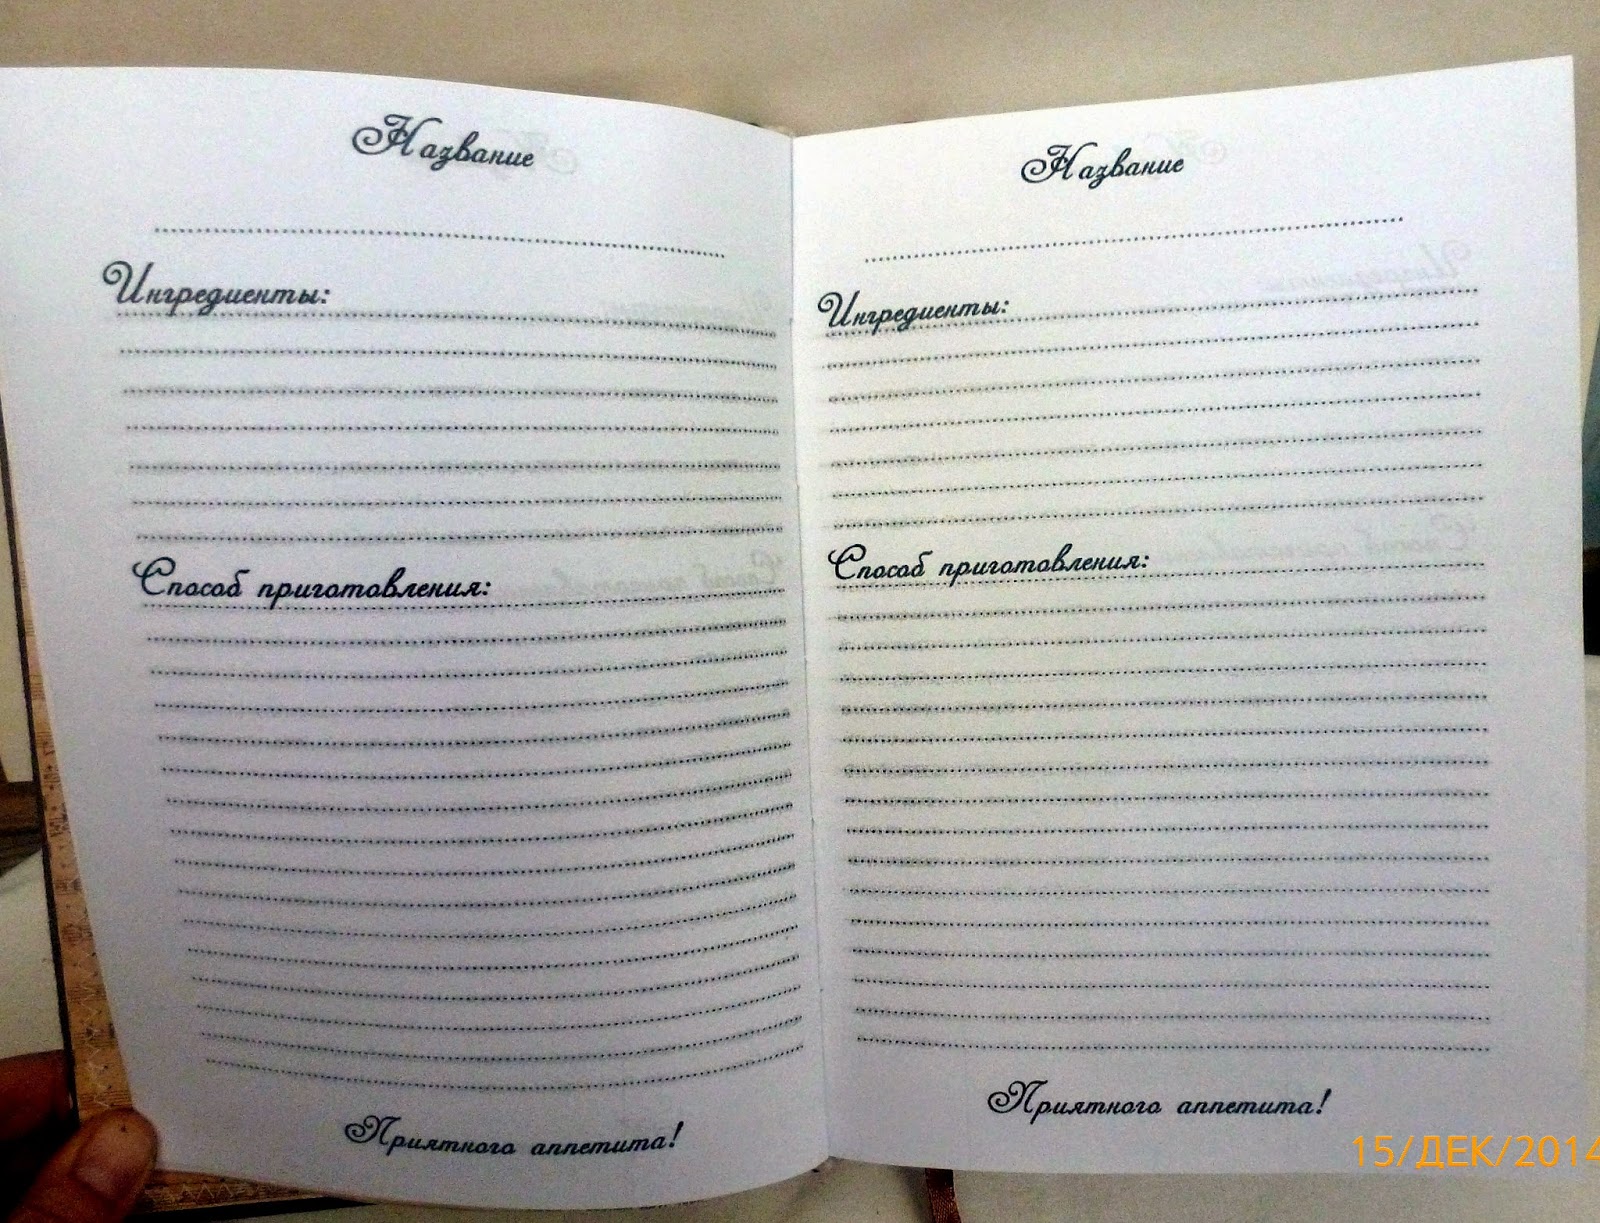 Название
Ингредиенты:
Способ приготовления:
Приятного аппетита!
Название
Ингредиенты:
Способ приготовления:
Приятного аппетита!
15/ДЕК/2014